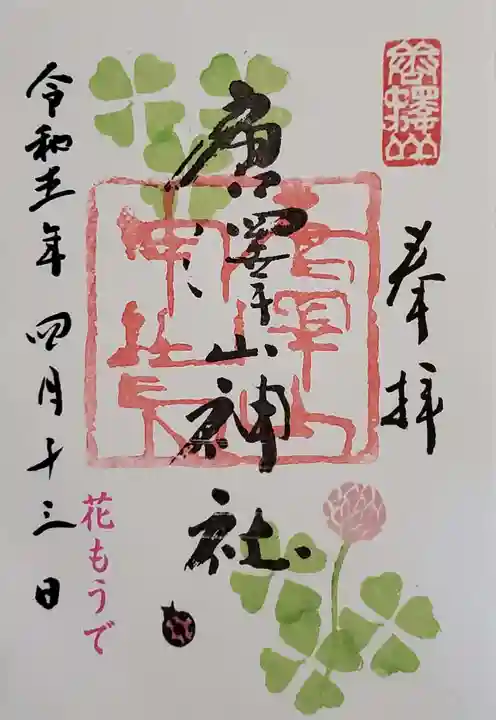 唐澤山
奉拝
唐澤山神社
令和五年四月十三日
花もうで